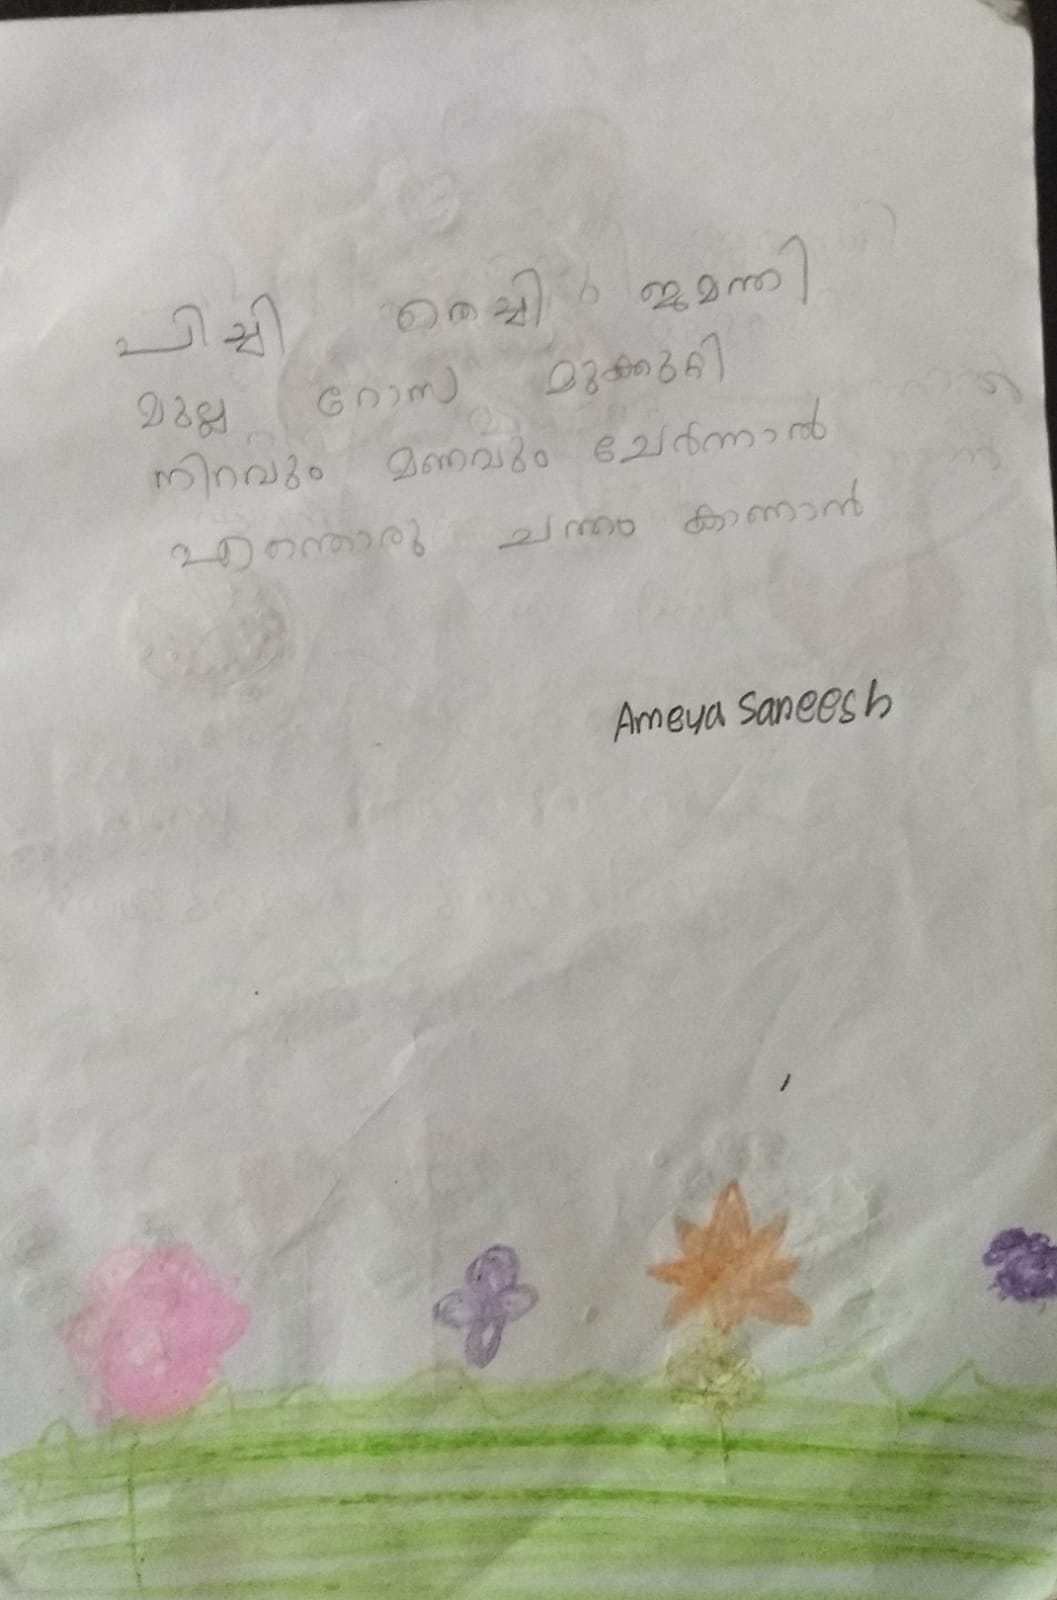 പിച്ചി തെച്ചി ജമന്തി
മുല്ല റോസ മുക്കുറ്റി
നിറവും മണവും ചേർന്നാൽ
എന്തൊരു ചന്തം കാണാൻ
Ameya Saneesh